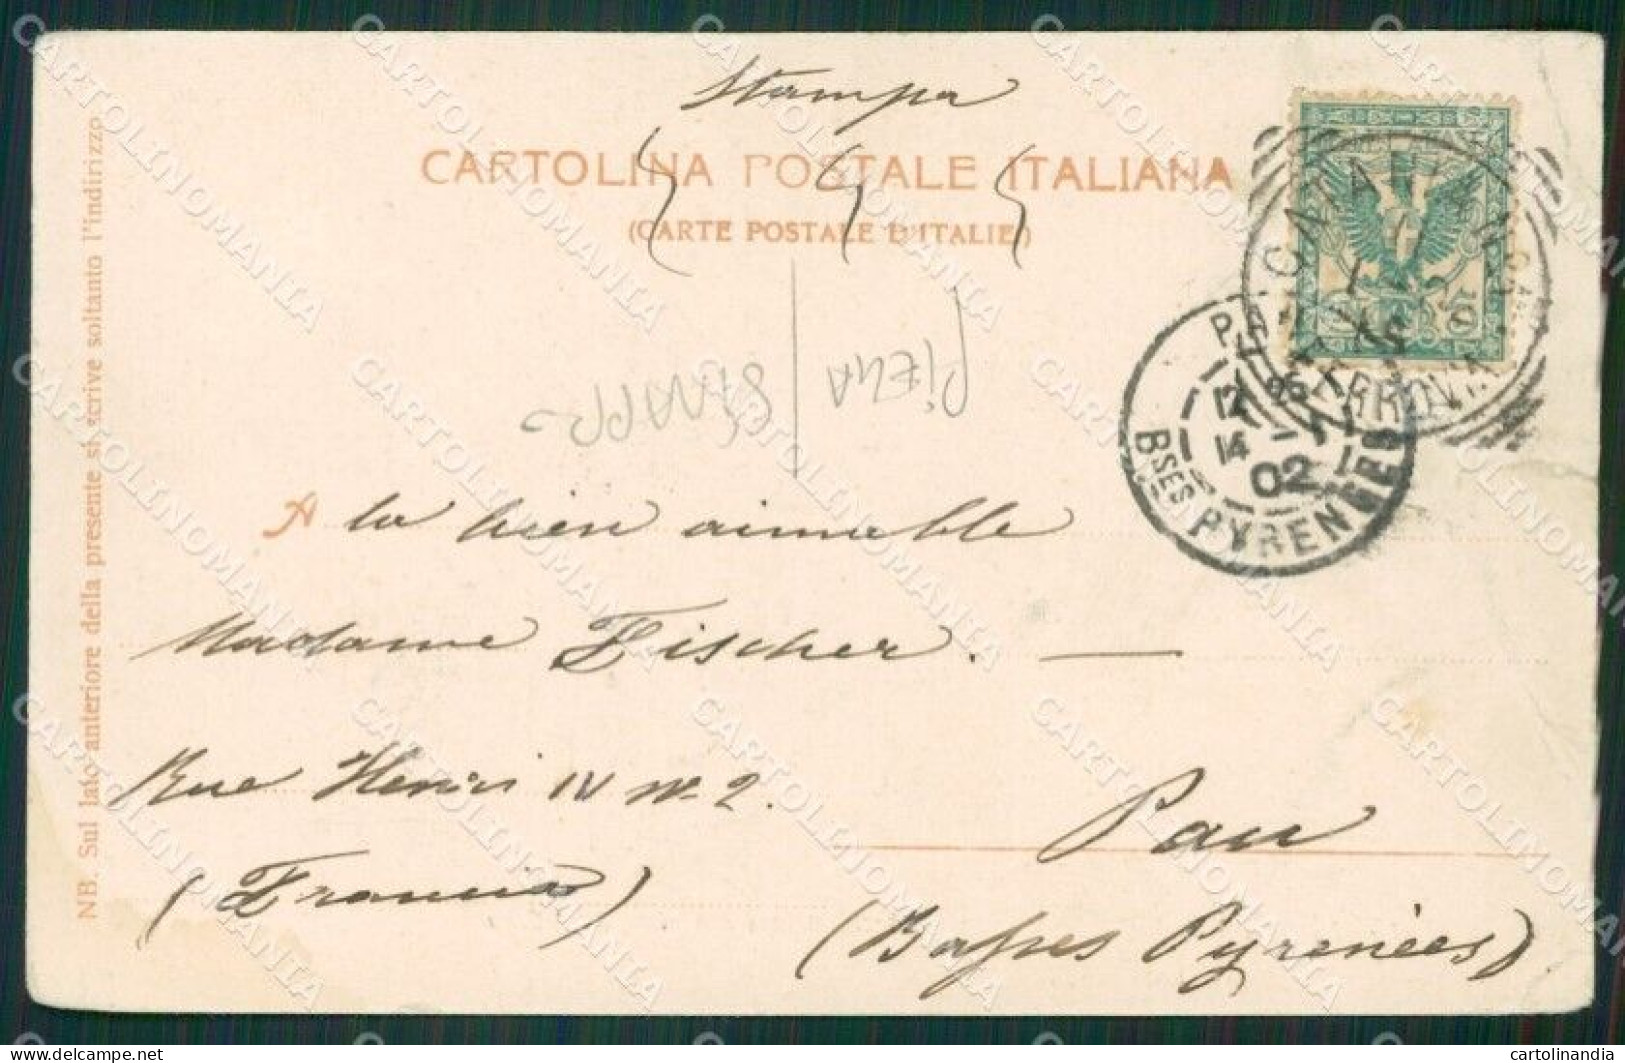 Stampa
CARTOLINA POSTALE ITALIANA
(CARTE POSTALE D'ITALIE)
CATANIA
FERROVIA
PAU
12
14 -
02
BSES PYRENEES
PIEGA
STAMPO
A la bien aimable
Madame Fischer. —
Rue Henri IV No 2.
Pau
(Francia)
(Basses Pyrenées)
NB. Sul lato anteriore della presente si scrive soltanto l'indirizzo.
CARTOLINOMANIA
delcampe.net
cartolinandia